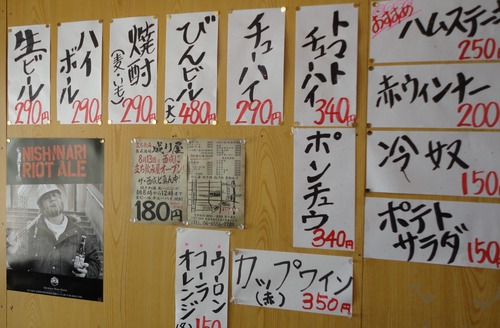 生ビール
290円
ハイボール
290円
焼酎
(麦・いも)
290円
びんビール
(大) 480円
チューハイ
290円
トマトチューハイ
340円
おすすめ
ハムステーキ
250円
赤ウィンナー
200
冷奴
150円
ポテト
サラダ
150円
NISHINARI
RIOT ALE
成り屋
8月13日
立ち呑み屋オープン
180円
ポンチュウ
340円
ウーロン
コーラ
オレンジ
150
カップワイン
(赤) 350円